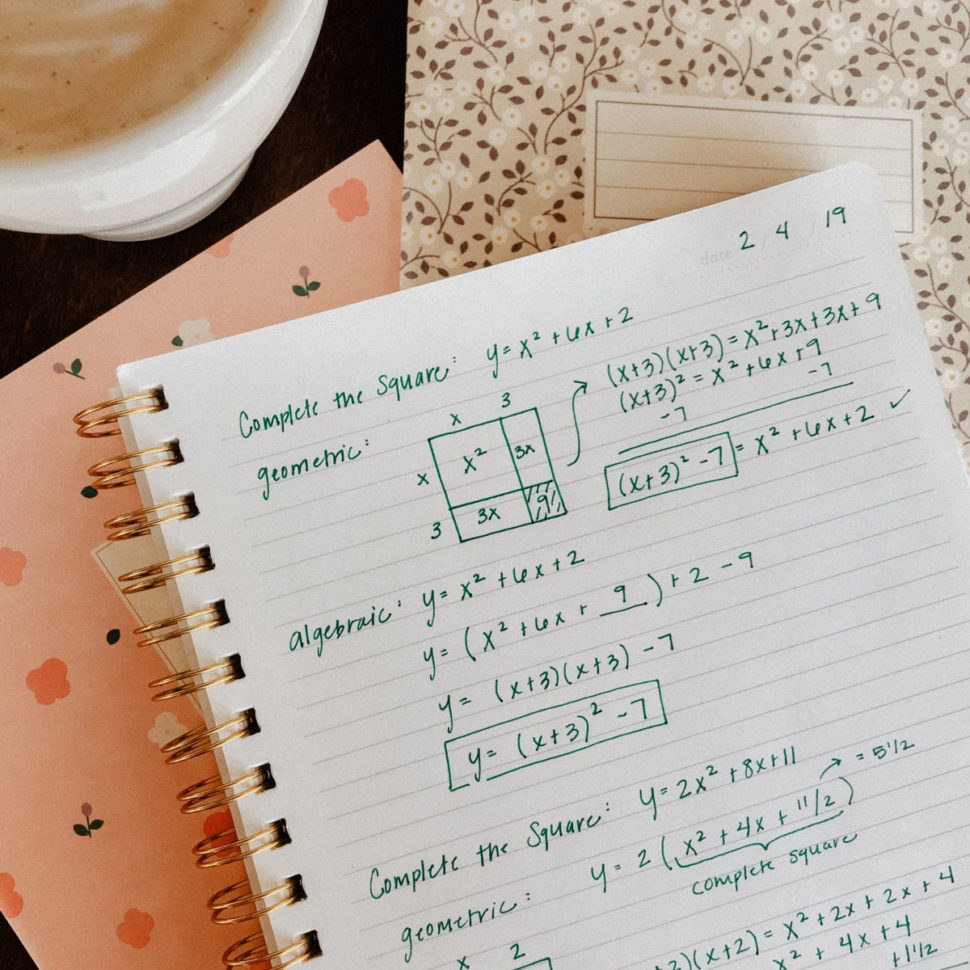 date 2 / 4 / 19
Complete the Square: y = x² + 6x + 2
geometric:
x 3
x x² 3x
3 3x 9
(x+3)(x+3) = x² + 3x + 3x + 9
(x+3)² = x² + 6x + 9
-7 -7
(x+3)² - 7 = x² + 6x + 2 ✓
algebraic: y = x² + 6x + 2
y = (x² + 6x + 9) + 2 - 9
y = (x+3)(x+3) - 7
y = (x+3)² - 7
Complete the Square: y = 2x² + 8x + 11
geometric: y = 2(x² + 4x + 11/2) = 5 1/2
complete square
x 2
)(x+2) = x² + 2x + 2x + 4
x² + 4x + 4
+1 1/2